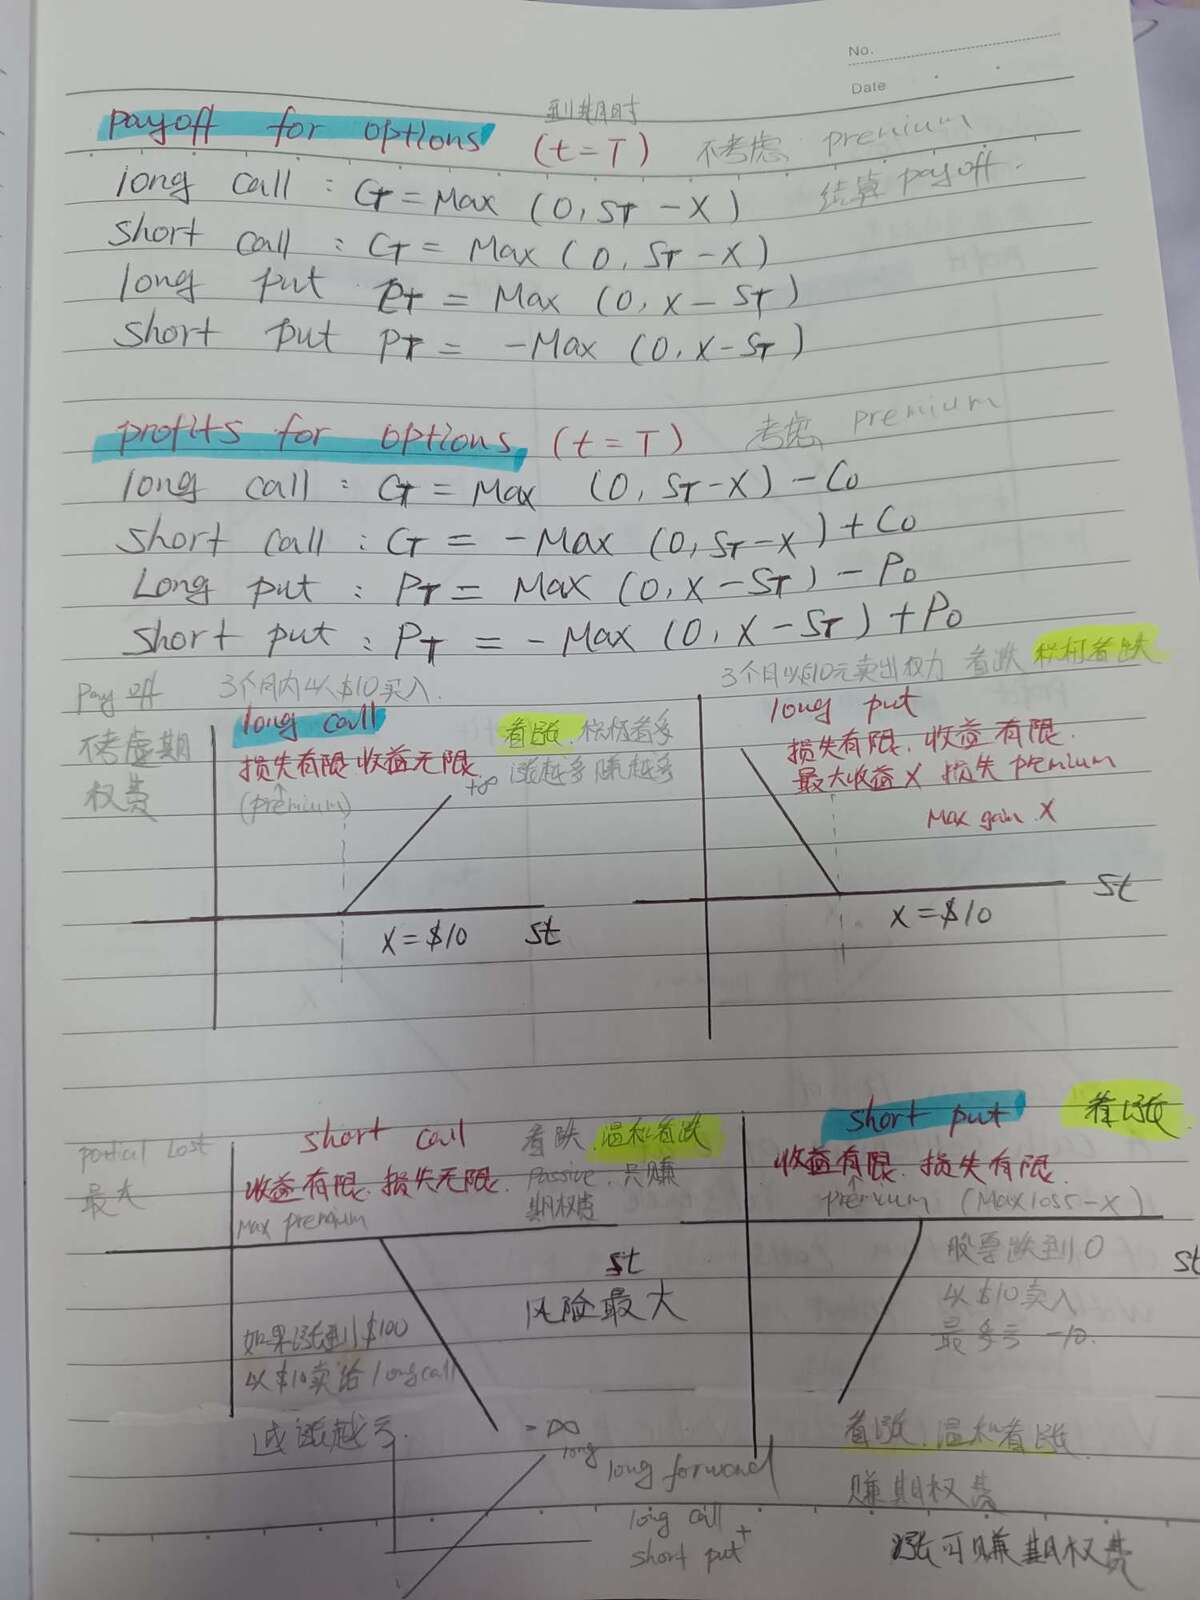 No.
Date
payoff for options (t=T) 到期时 不考虑 premium
结算 payoff.
long call : CT = Max (0, ST - X)
short call : CT = Max (0, ST - X)
long put PT = Max (0, X - ST)
short put PT = -Max (0, X - ST)
profits for options (t=T) 考虑 premium
long call : CT = Max (0, ST - X) - C0
short call : CT = -Max (0, ST - X) + C0
Long put : PT = Max (0, X - ST) - P0
short put : PT = - Max (0, X - ST) + P0
Pay off 3个月内以$10买入.
不考虑期
权费
long call 看涨 积极看多
损失有限.收益无限. 涨越多赚越多
(premium) +∞
X = $10 St
3个月以$10元卖出权力 看跌 积极看跌
long put
损失有限. 收益有限.
最大收益 X 损失 premium
Max gain X
St
X = $10
partial Lost
最大
short call 看跌. 温和看跌
收益有限. 损失无限. Passive. 只赚
Max premium 期权费
St
风险最大
如果涨到$100
以$10卖给 long call
越涨越亏.
-∞
short put 看涨
收益有限. 损失有限.
premium (Max loss -X)
股票跌到0 St
以$10买入
最多亏 -10.
看涨. 温和看涨
赚期权费
涨可赚期权费
long
long forward
long call
+
short put